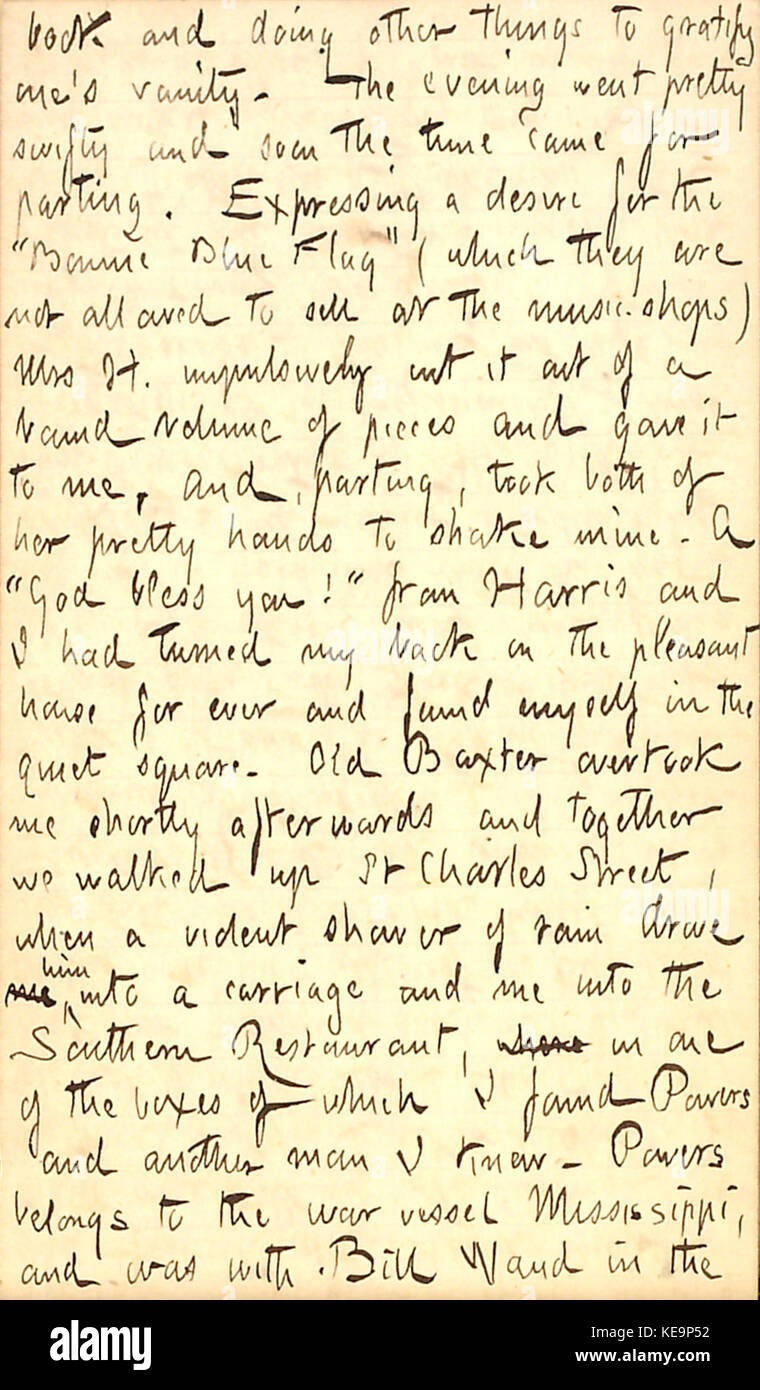 book and doing other things to gratify
one's vanity. The evening went pretty
swifty and soon the time came for
parting. Expressing a desire for the
"Bonnie Blue Flag" (which they are
not allowed to sell at the music-shops)
Mrs H. impulsively cut it out of a
bound volume of pieces and gave it
to me, and, parting, took both of
her pretty hands to shake mine. A
"God bless you!" from Harris and
I had turned my back on the pleasant
house for ever and found myself in the
quiet square. Old Baxter overtook
me shortly afterwards and together
we walked up St Charles Street,
when a violent shower of rain drove
me him into a carriage and me into the
Southern Restaurant, where in one
of the boxes of which I found Powers
and another man I knew. Powers
belongs to the war vessel Mississippi,
and was with Bill Waud in the
alamy
Image ID: KE9P52
www.alamy.com